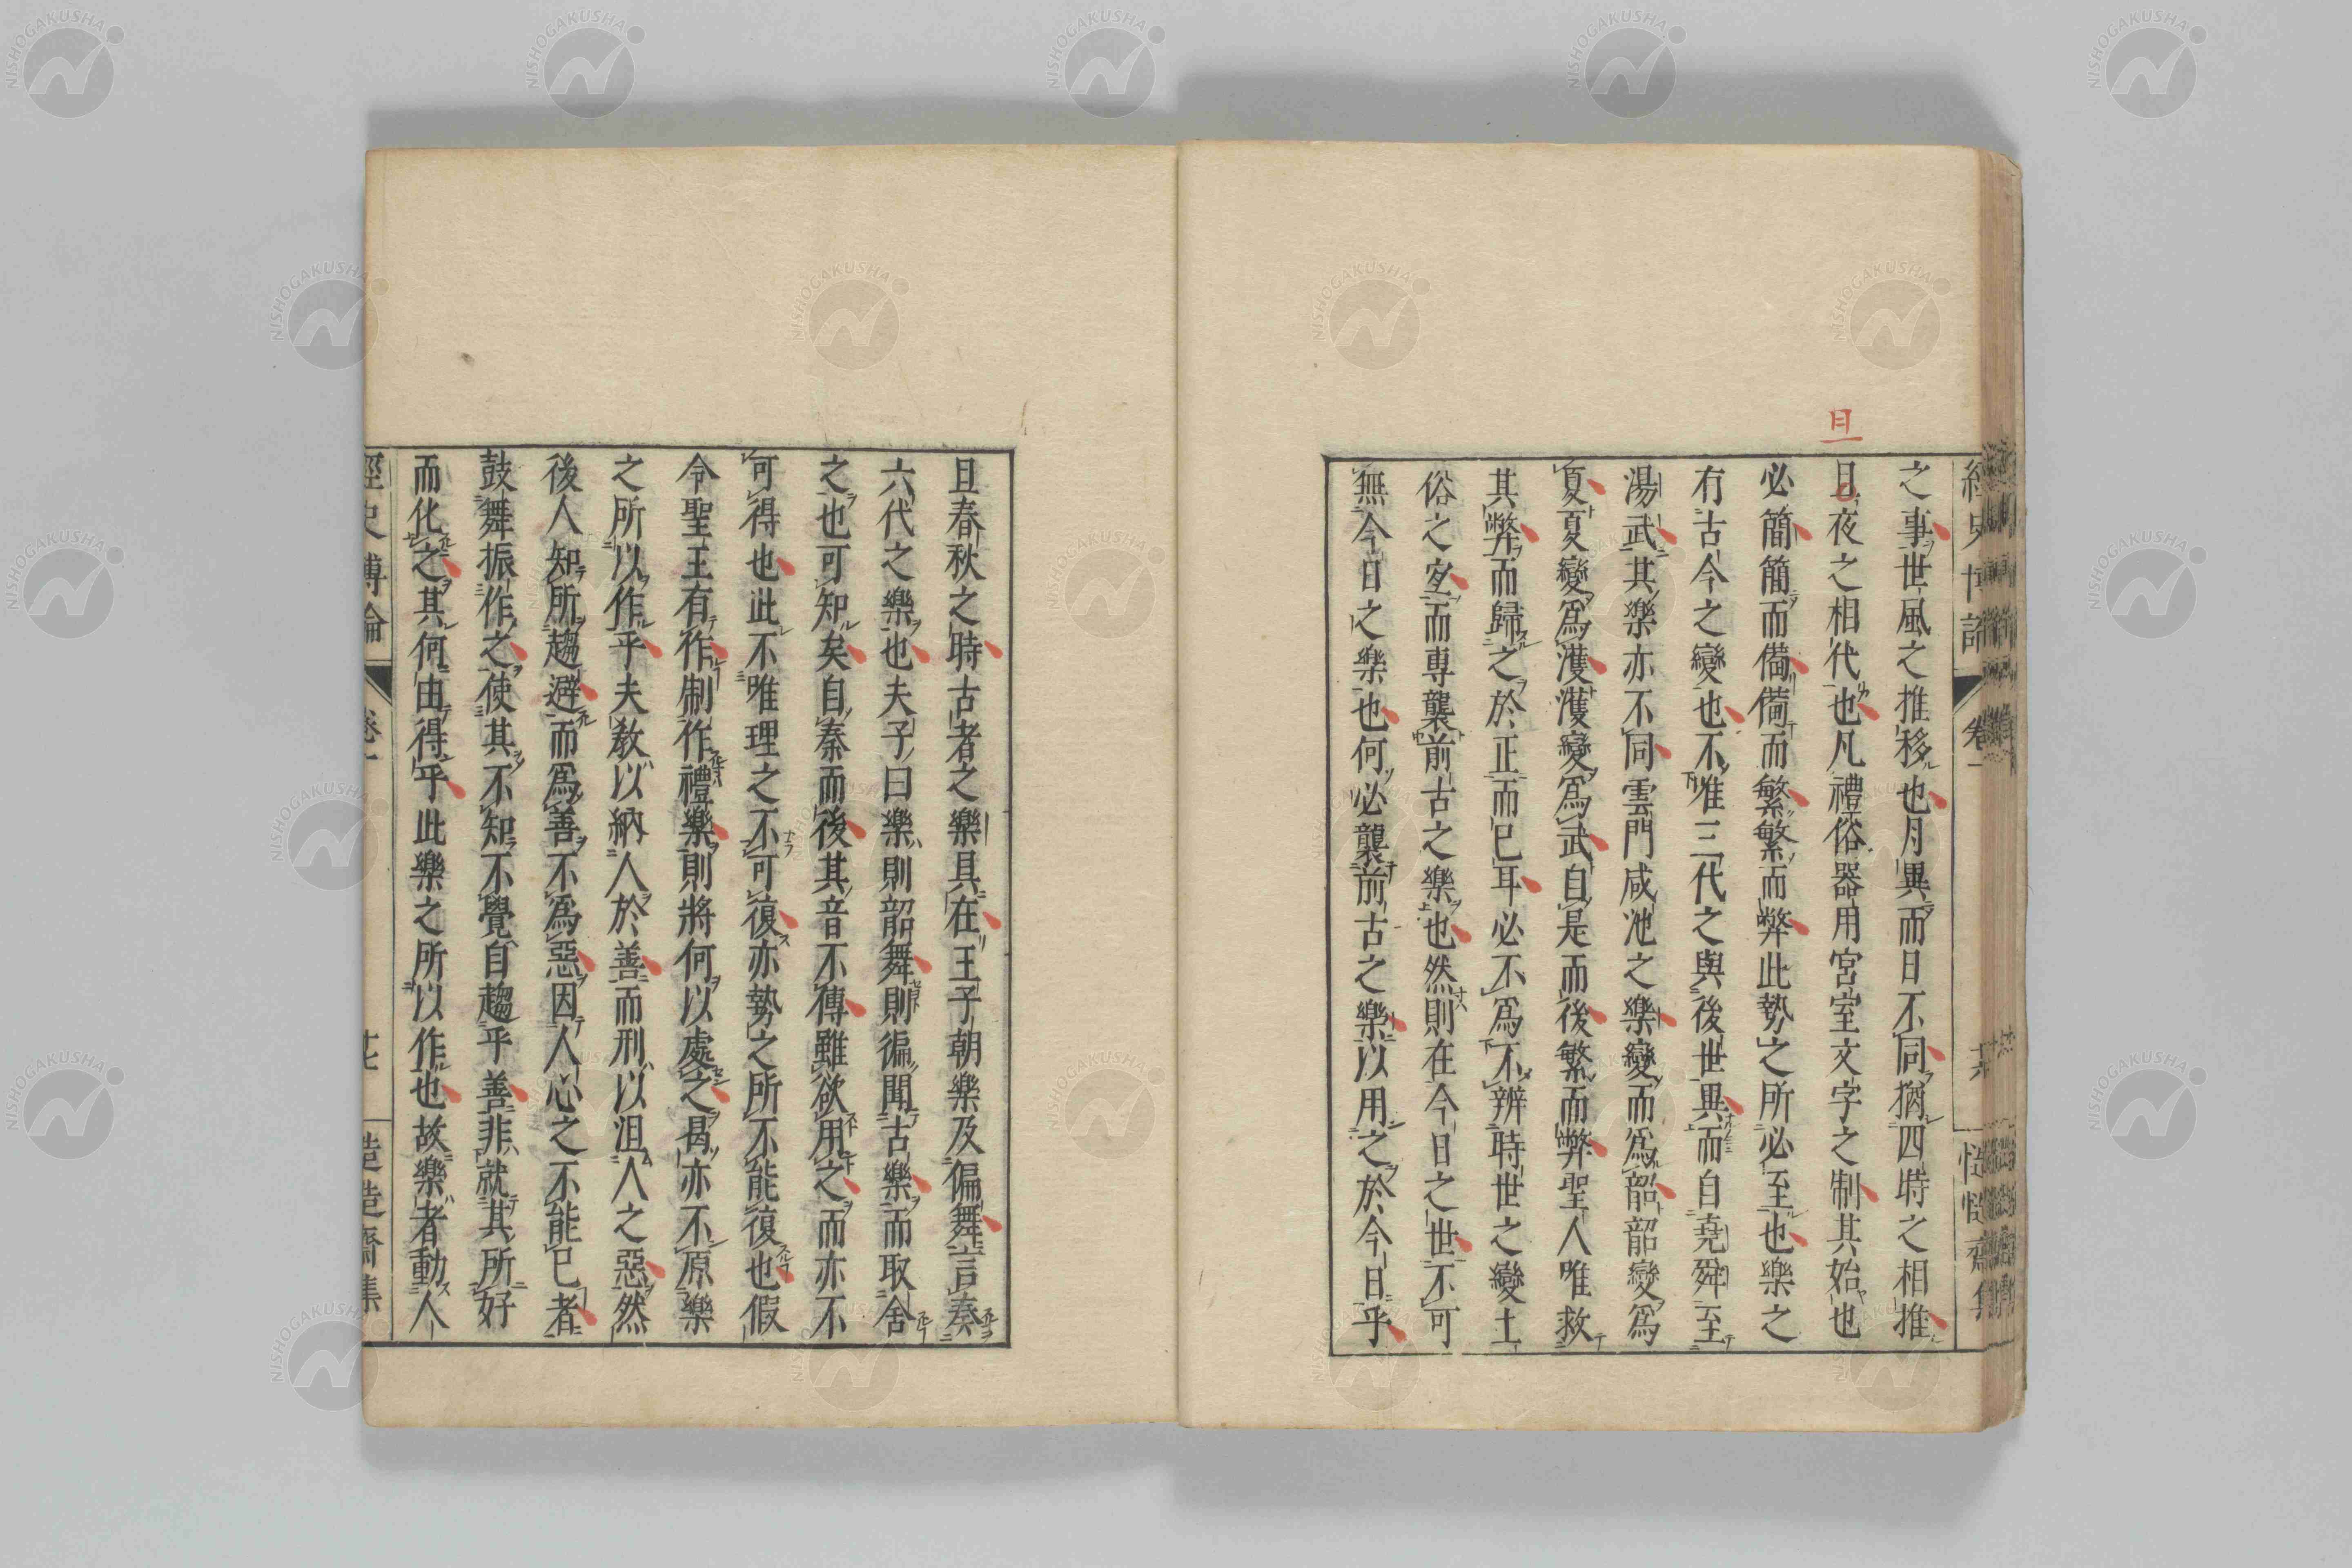 旦
之事世風之推移也月異而日不同猶四時之相推
且夜之相代也凡禮俗器用宮室文字之制其始也
必簡簡而備備而繁繁而弊此勢之所必至也樂之
有古今之變也不唯三代之與後世異而自堯舜至
湯武其樂亦不同雲門咸池之樂變而爲韶韶變爲
夏夏變爲濩濩變爲武自是而後繁而弊聖人唯救
其弊而歸之於正而已耳必不爲不辨時世之變土
俗之宜而專襲前古之樂也然則在今日之世不可
無今日之樂也何必襲前古之樂以用之於今日乎
經史博論 卷一 十六
且春秋之時古者之樂具在王子朝樂及偏舞言奏
六代之樂也夫子曰樂則韶舞則徧聞古樂而取舍
之也可知矣自秦而後其音不傳雖欲用之而亦不
可得也此不唯理之不可復亦勢之所不能復也假
令聖王有作制作禮樂則將何以處之曷亦不原樂
之所以作乎夫敎以納人於善而刑以沮人之惡然
後人知所趨避而爲善不爲惡因人心之不能已者
鼓舞振作之使其不知不覺自趨乎善非就其所好
而化之其何由得乎此樂之所以作也故樂者動人
經史博論 卷一 十七
NISHOGAKUSHA